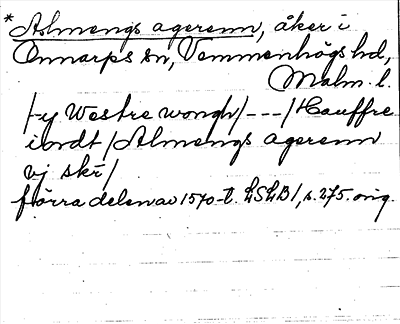 *Almengs agerenn, åker i
Onnarps sn, Vemmenhögs hd,
Malm. l.
/-y Westre wongh/---/Hauffre
iordt/Almengs agerenn
vj skr̄/
förra delen av 1570-t. LSLB1, s. 275. orig.